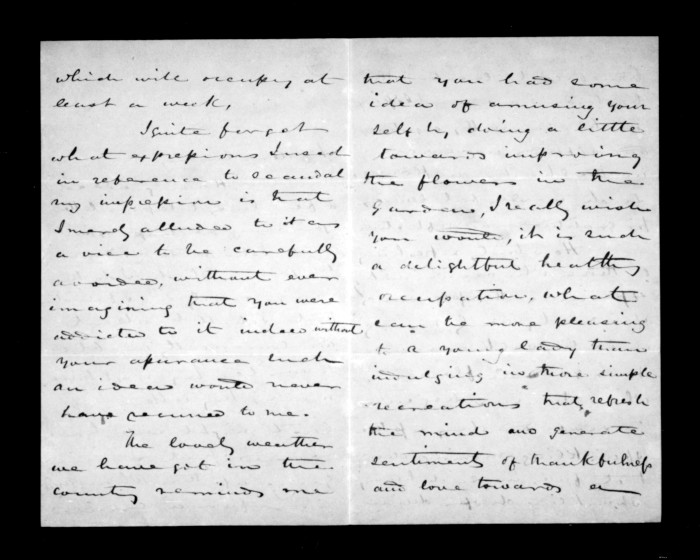 which will occupy at
least a week,
I quite forget
what expressions I used
in reference to scandal
my impression is that
I merely alluded to it as
a vice to be carefully
avoided, without ever
imagining that you were
addicted to it indeed without
your assurance such
an idea would never
have occured to me.
The lovely weather
we have got in the
country reminds me
that you had some
idea of amusing your
self by doing a little
towards improving
the flowers in the
garden, I really wish
you would, it is such
a delightful healthy
occupation, what
can be more pleasing
to a young lady than
indulging in those simple
recreations that refresh
the mind and generate
sentiments of thankfulness
and love towards a